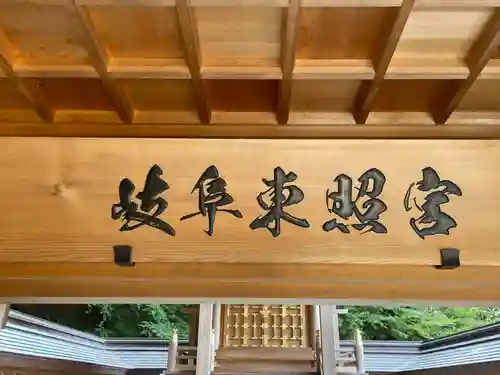 岐阜東照宮